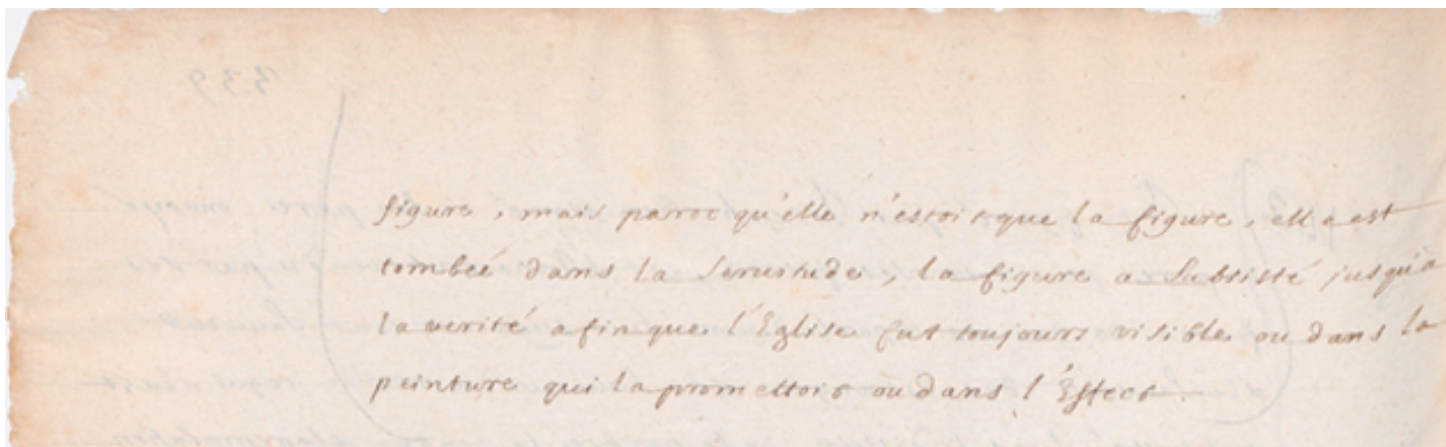 figure, mais parce qu'elle n'estoit que la figure, elle est
tombeé dans la Servitude, la figure a Subsisté jusqu'à
la verité afin que l'Eglise fut toujours visible ou dans la
peinture qui la promettoit ou dans l'Effect.